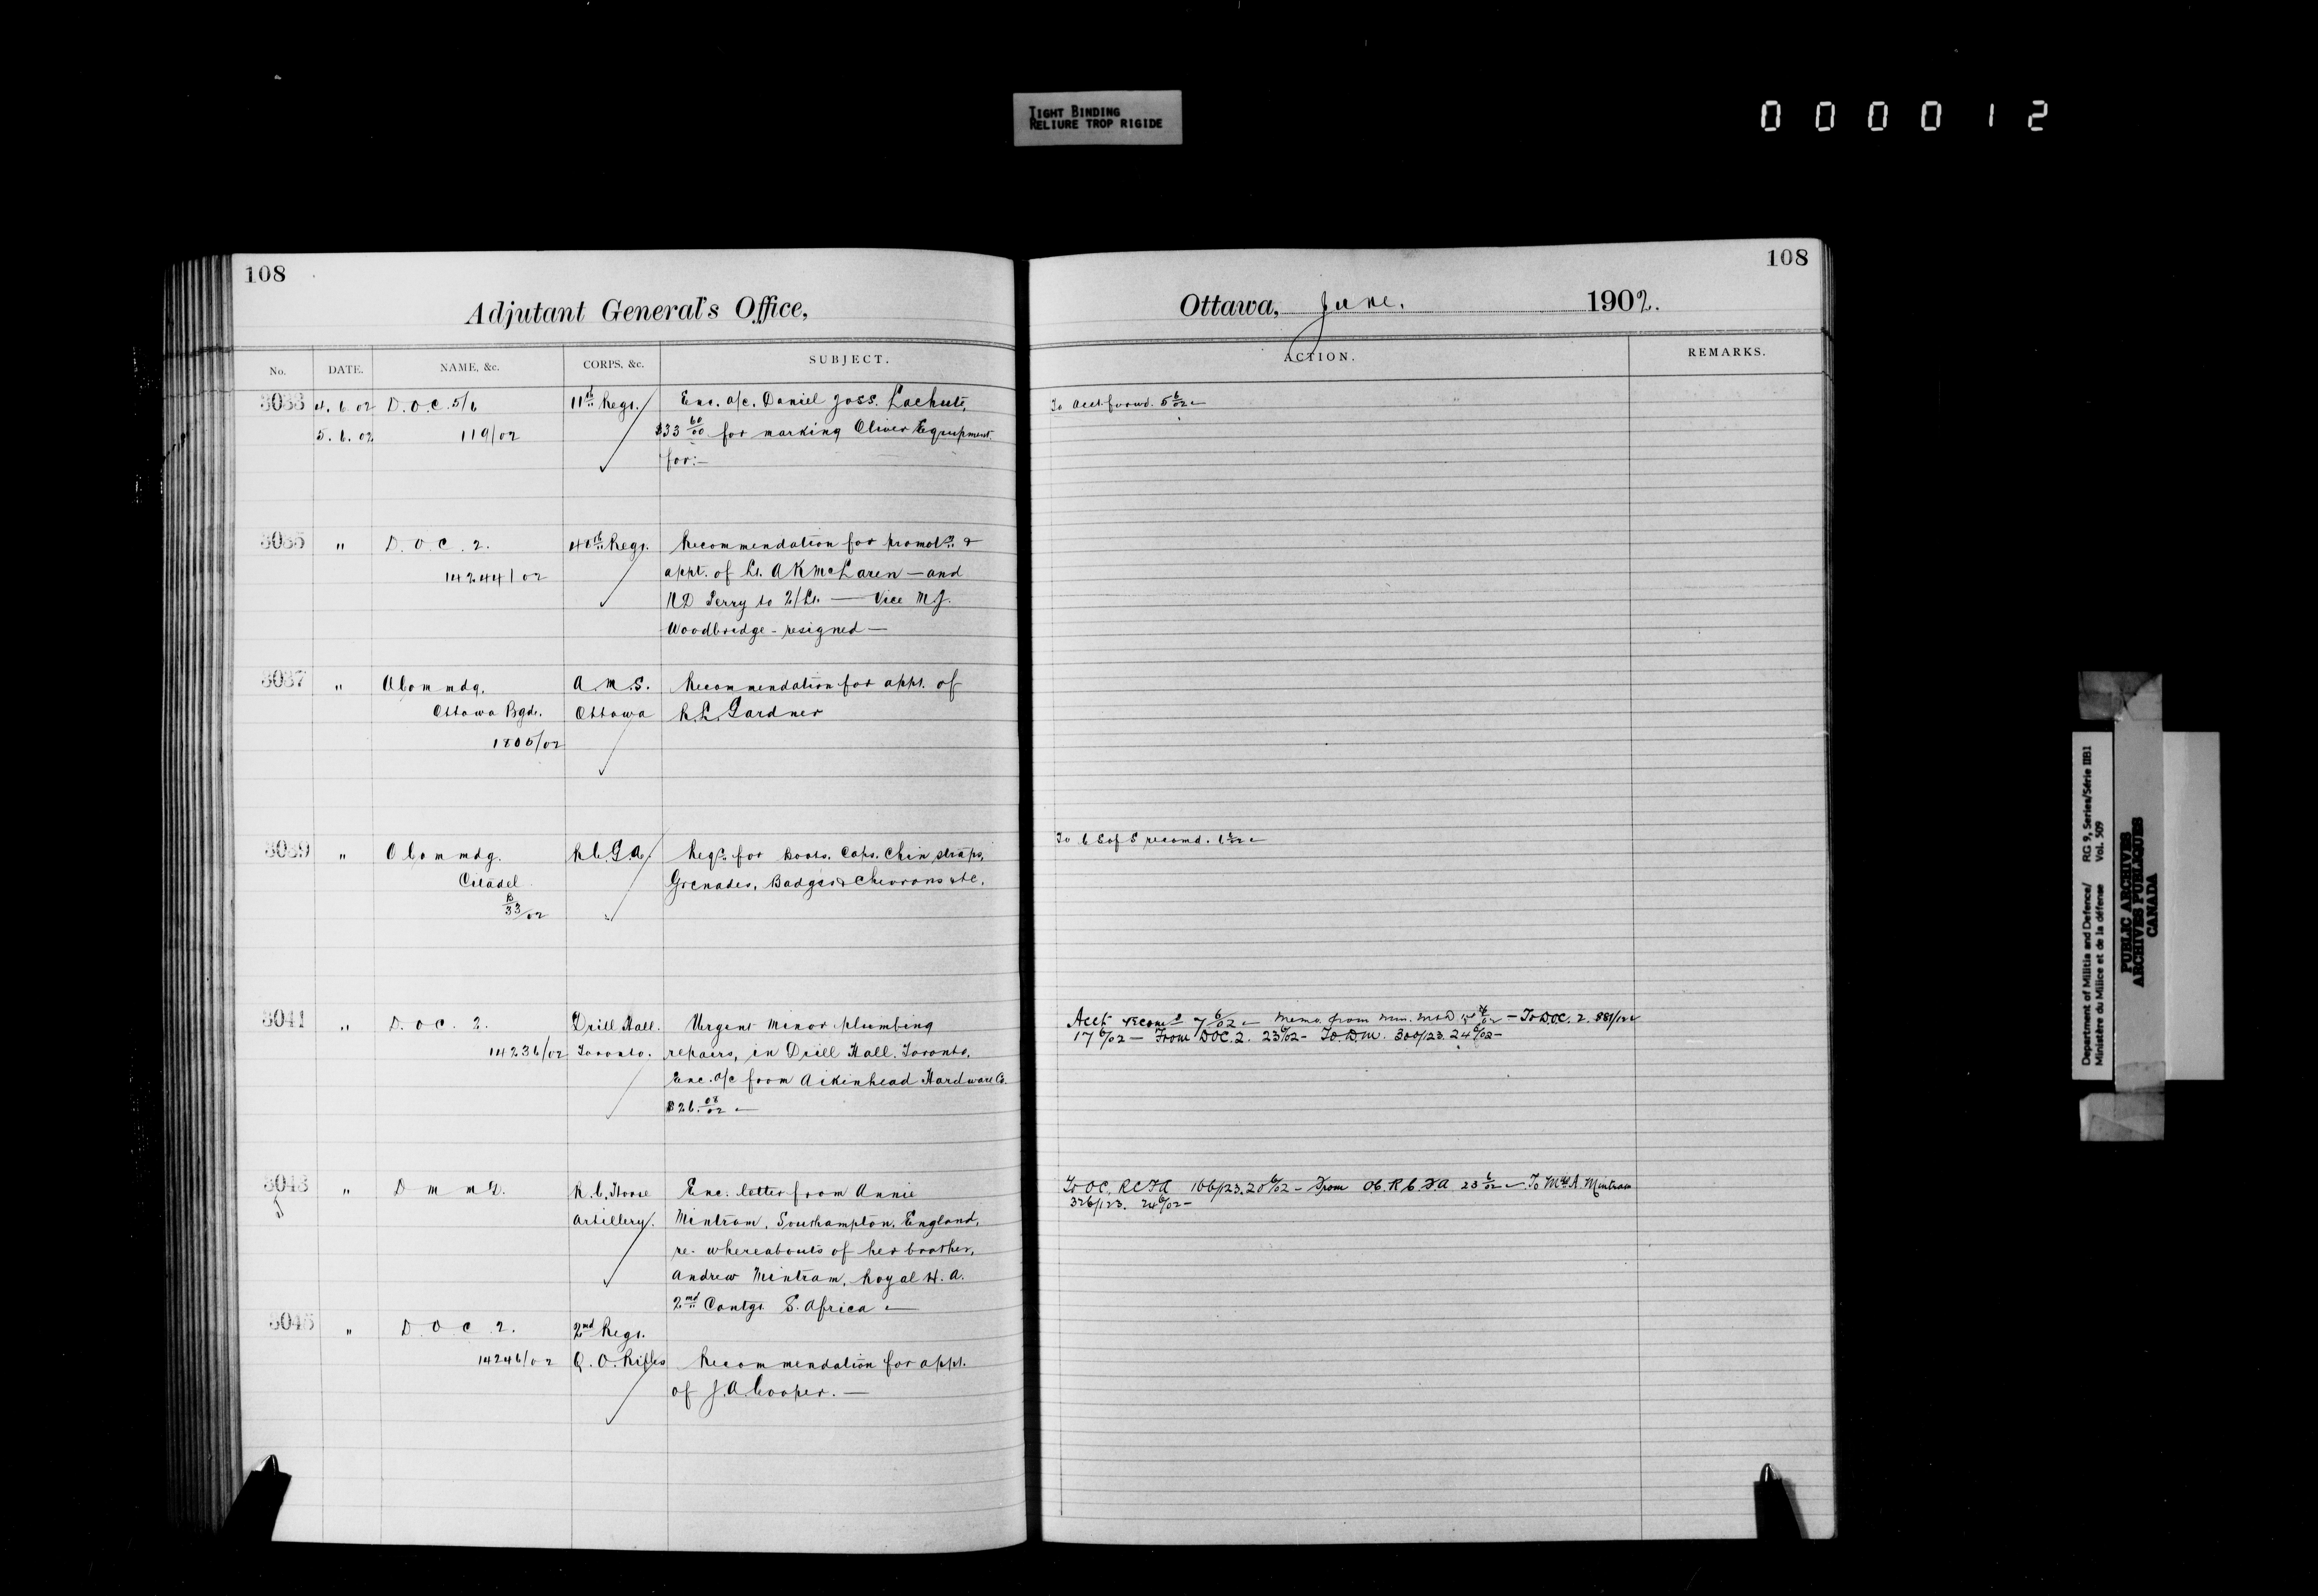 TIGHT BINDING
RELIURE TROP RIGIDE
000012
108
Adjutant General's Office,
No. DATE. NAME, &c. CORPS, &c. SUBJECT.
3033 4.6.02 D.O.C. 5/6 11th Regt. Enc. a/c. Daniel Joss. Lachute,
5.6.02 119/02 $33 60/00 for marking Oliver Equipment
for:—
3035 " D.O.C. 2. 48th Regt. Recommendation for promotn. &
14244/02 appt. of Lt. A K McLaren — and
Perry to 2/Lt. — Vice M J.
Woodbridge - resigned —
3037 " O Commdg. A.M.S. Recommendation for appt. of
Ottawa Bgde. Ottawa R.L. Gardner
1805/02
3039 " O Commdg. R.C.G.A. Reqn. for Boots. Caps. Chin straps,
Citadel Grenades, Badges & Chevrons etc.
B/33/02
3041 " D.O.C. 2. Drill Hall. Urgent minor plumbing
14236/02 Toronto. repairs, in Drill Hall. Toronto.
Enc. a/c from Aikenhead Hardware Co.
$26.
3043 " D M M D. R.C. Horse Enc. letter from Annie
Artillery. Mintram, Southampton, England,
re. whereabouts of her brother,
Andrew Mintram, Royal H.A.
2nd Contgt. S. Africa —
3045 " D.O.C. 2. 2nd Regt.
14246/02 Q.O. Rifles Recommendation for appt.
of J.A. Cooper. —
108
Ottawa, June. 1902.
ACTION. REMARKS.
To Acct forwd. 5 6/02
To C S of S recomd. 6/02
Acct recomd 7 6/02 — Memo. from Min. M & D. — To D.O.C. 2.
17 6/02 — From DOC. 2. 23 6/02 - To D.M. 300/123. 24 6/02 —
To OC. RCFA 106/123. 20 6/02 - From OC. R C F A 23 6/02 — To Mrs A. Mintram
326/123. 24 6/02 —
Department of Militia and Defence/ RG 9, Series/Série IIB1
Ministère du Milice et de la défense Vol. 509
PUBLIC ARCHIVES
ARCHIVES PUBLIQUES
CANADA